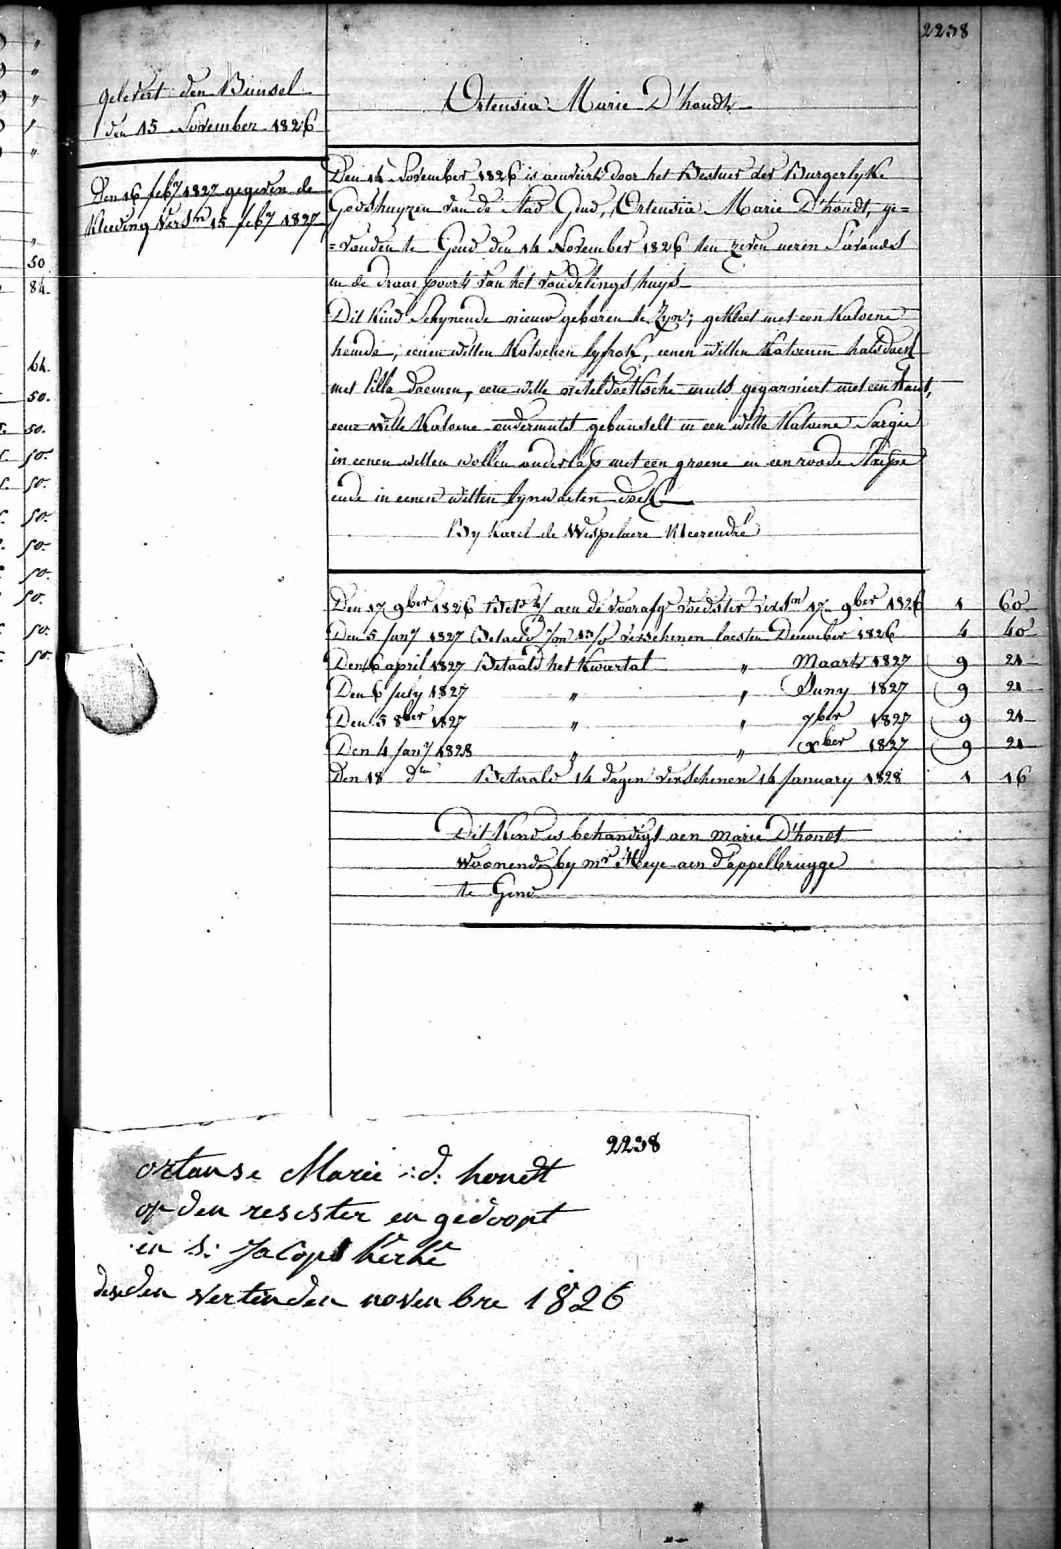 2238
gelevert den Bunsel
den 15 November 1826
Ortensia Marie D'hondt
Den 16 feb.y 1827 gegeven de
Kleeding Versn 15 feb.y 1827
Den 14 November 1826 is aenveird door het Bestuer der Burgerlyke
Godshuyzen van de Stad Gend, Ortensia Marie D'hondt, ge=
=vonden te Gend den 14 November 1826 ten zeven ueren S'avonds
in de draai poorte van het vondelings huys
Dit Kind Schynende nieuw geboren te Zyn; gekleet met een Katoene
hemde, eenen witten Katoenen lyfrok, eenen witten Katoenen halsdoek
met lilla bloemen, eene witte muts gegarniert met een Kant,
eene witte Katoene ondermuts gebunselt in een witte Katoene Sargie
in eenen witten wollen onderlap met een groene en een roode Streepe
ende in eenen witten lynwaeten doek
By Karel de Wispelaere Meerendré
Den 17 9ber 1826 aen de voorafge voedster verstn 17 9ber 1826 1 60
Den 5 Jany 1827 Betaeld verschenen laesten December 1826 4 40
Den 6 april 1827 Betaald het Kwartal " Maart 1827 9 21
Den 6 July 1827 " " Juny 1827 9 21
Den 5 8ber 1827 " " 7ber 1827 9 21
Den 4 Jany 1828 " " Xber 1827 9 21
Den 18 do Betaald 14 dagen verschenen 14 January 1828 1 16
Dit Kind is behandigt aen Marie D'hondt
woonende by mr aen d'appelbrugge
te Gend
2238
ortanse Marie :d: hondt
op den resister en gedoopt
in S: Jacops kerke
desen den vertinden novenbre 1826
50
84
64
50.
50.
50
50.
50.
50.
50.
50.
50.
50.
50.